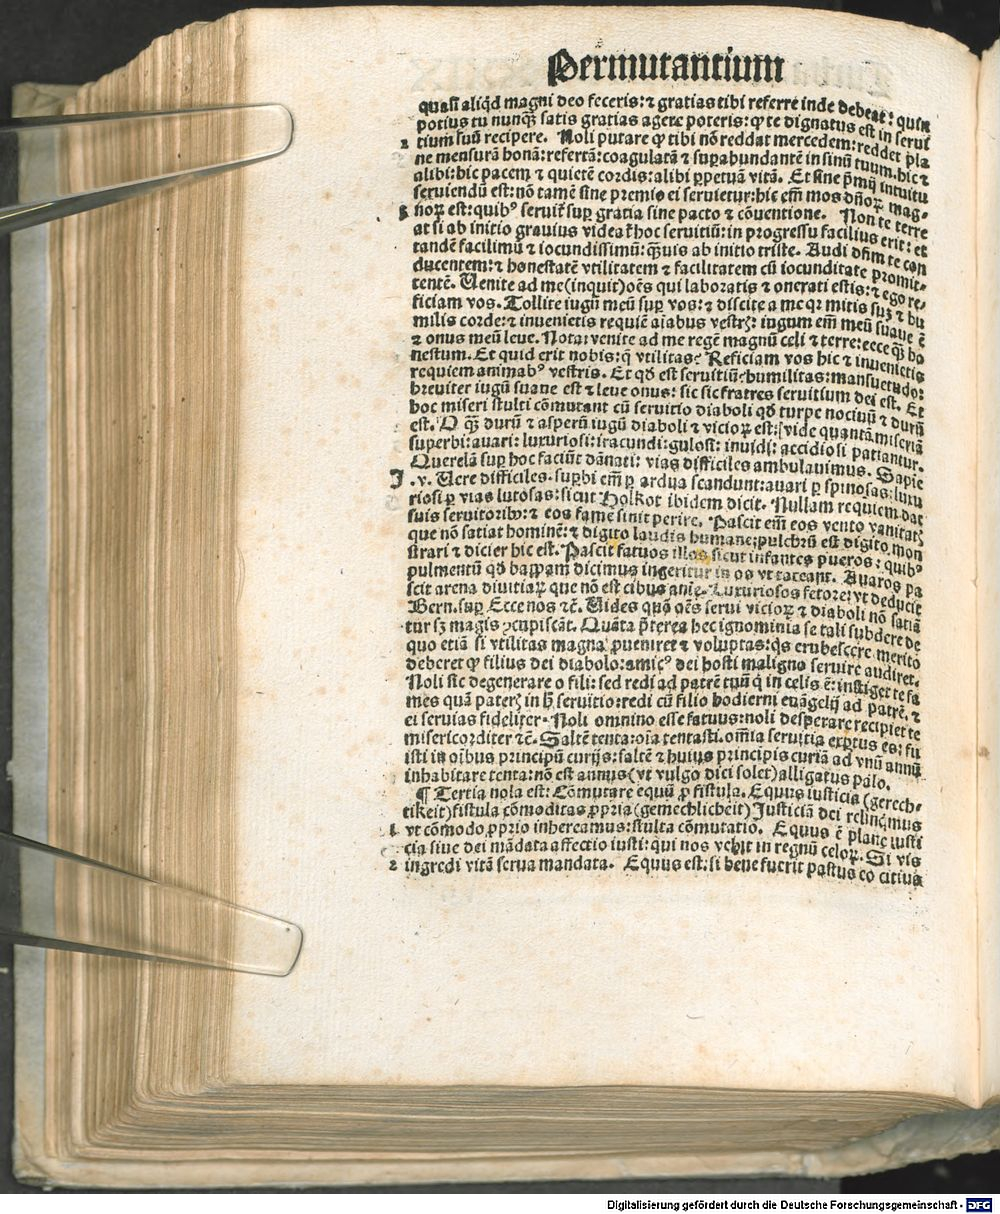 Permutantium
quasi aliqḋ magni deo feceris: ⁊ gratias tibi referre inde debeat: quin
potius tu nunqȝ satis gratias agere poteris: ꝙ te dignatus est in serui
2 tium suū recipere. Noli putare ꝙ tibi nō reddat mercedem: reddet pla
ne mensurā bonā: refertā: coagulatā ⁊ suꝑabundantē in sinū tuum. hic ⁊
alibi: hic pacem ⁊ quietē cordis: alibi ꝑpetuā vitā. Et sine p̄mij intuitu
seruiendū est: nō tamē sine premio ei seruietur: hic em̄ mos dn̄oꝝ mag-
3 noꝝ est: quibꝰ seruit̄ suꝑ gratia sine pacto ⁊ cōuentione. Non te terre
at si ab initio grauius videat̄ hoc seruitiū: in progressu facilius erit: et
tandē facilimū ⁊ iocundissimū: qȝuis ab initio triste. Audi dn̄m te con
ducentem: ⁊ honestatē vtilitatem ⁊ facilitatem cū iocunditate promit-
tentē. Uenite ad me (inquit) oēs qui laboratis ⁊ onerati estis: ⁊ ego re-
ficiam vos. Tollite iugū meū suꝑ vos: ⁊ discite a me qꝛ mitis suȝ ⁊ hu
milis corde: ⁊ inuenietis requiē aīabus vestrȝ: iugum em̄ meū suaue ē
⁊ onus meū leue. Nota: venite ad me regē magnū celi ⁊ terre: ecce qȝ ho
nestum. Et quid erit nobis: q̄ vtilitas? Reficiam vos hic ⁊ inuenietis
requiem animabꝰ vestris. Et qḋ est seruitiū: humilitas: mansuetudo:
breuiter iugū suaue est ⁊ leue onus: sic sic fratres seruitium dei est. Et
hoc miseri stulti cōmutant cū seruitio diaboli qḋ turpe nociuū ⁊ durū
est. O qȝ durū ⁊ asperū iugū diaboli ⁊ vicioꝝ est: vide quantā miseriā
superbi: auari: luxuriosi: iracundi: gulosi: inuidi: accidiosi patiantur.
Querelā suꝑ hoc faciūt dānati: vias difficiles ambulauimus. Sapie
J .v. Uere difficiles. suꝑbi em̄ ꝑ ardua scandunt: auari ꝑ spinosas: luxu
riosi ꝑ vias lutosas: sicut Holkot ibidem dicit. Nullam requiem dat
suis seruitoribꝰ: ⁊ eos fame sinit perire. Pascit em̄ eos vento vanitatȝ
que nō satiat hominē: ⁊ digito laudis humane: pulchrū est digito mon
strari ⁊ dicier hic est. Pascit fatuos illos sicut infantes pueros: quibꝰ
pulmentū qḋ bappam dicimus ingeritur in os vt taceant. Auaros pa
scit arena diuitiaꝝ que nō est cibus anīe. Luxuriosos fetore: vt deducit
Bern. suꝑ Ecce nos ⁊c̄. Uides quō oēs serui vicioꝝ ⁊ diaboli nō satiā
tur sȝ magis ꝯcupiscāt. Quāta p̄terea hec ignominia se tali subdere de
quo etiā si vtilitas magna ꝓueniret ⁊ voluptas: qs erubescere merito
deberet ꝙ filius dei diabolo: amicꝰ dei hosti maligno seruire audiret.
Noli sic degenerare o fili: sed redi ad patrē tuū q̇ in celis ē: instiget te fa
mes quā pateris in h̄ seruitio: redi cū filio hodierni euāgelij ad patrē. ⁊
ei seruias fideliter. Noli omnino esse fatuus: noli desperare recipiet te
misericorditer ⁊c̄. Saltē tenta: oīa tentasti. om̄ia seruitia exꝑtus es: fu
isti in oībus principū curijs: saltē ⁊ huius principis curiā ad vnū annū
inhabitare tenta: nō est annus (vt vulgo dici solet) alligatus palo.
¶ Tertia nola est: Cōmutare equū ꝓ fistula. Equus iusticia (gerech-
tikeit) fistula cōmoditas ꝓpria (gemechlicheit) Justiciā dei relinq̇mus
1 vt cōmodo ꝓprio inhereamus: stulta cōmutatio. Equus ē plane iusti
cia siue dei mādata affectio iusti: qui nos vehit in regnū celoꝝ. Si vis
2 ingredi vitā serua mandata. Equus est: si bene fuerit pastus eo citius
Digitalisierung gefördert durch die Deutsche Forschungsgemeinschaft - DFG